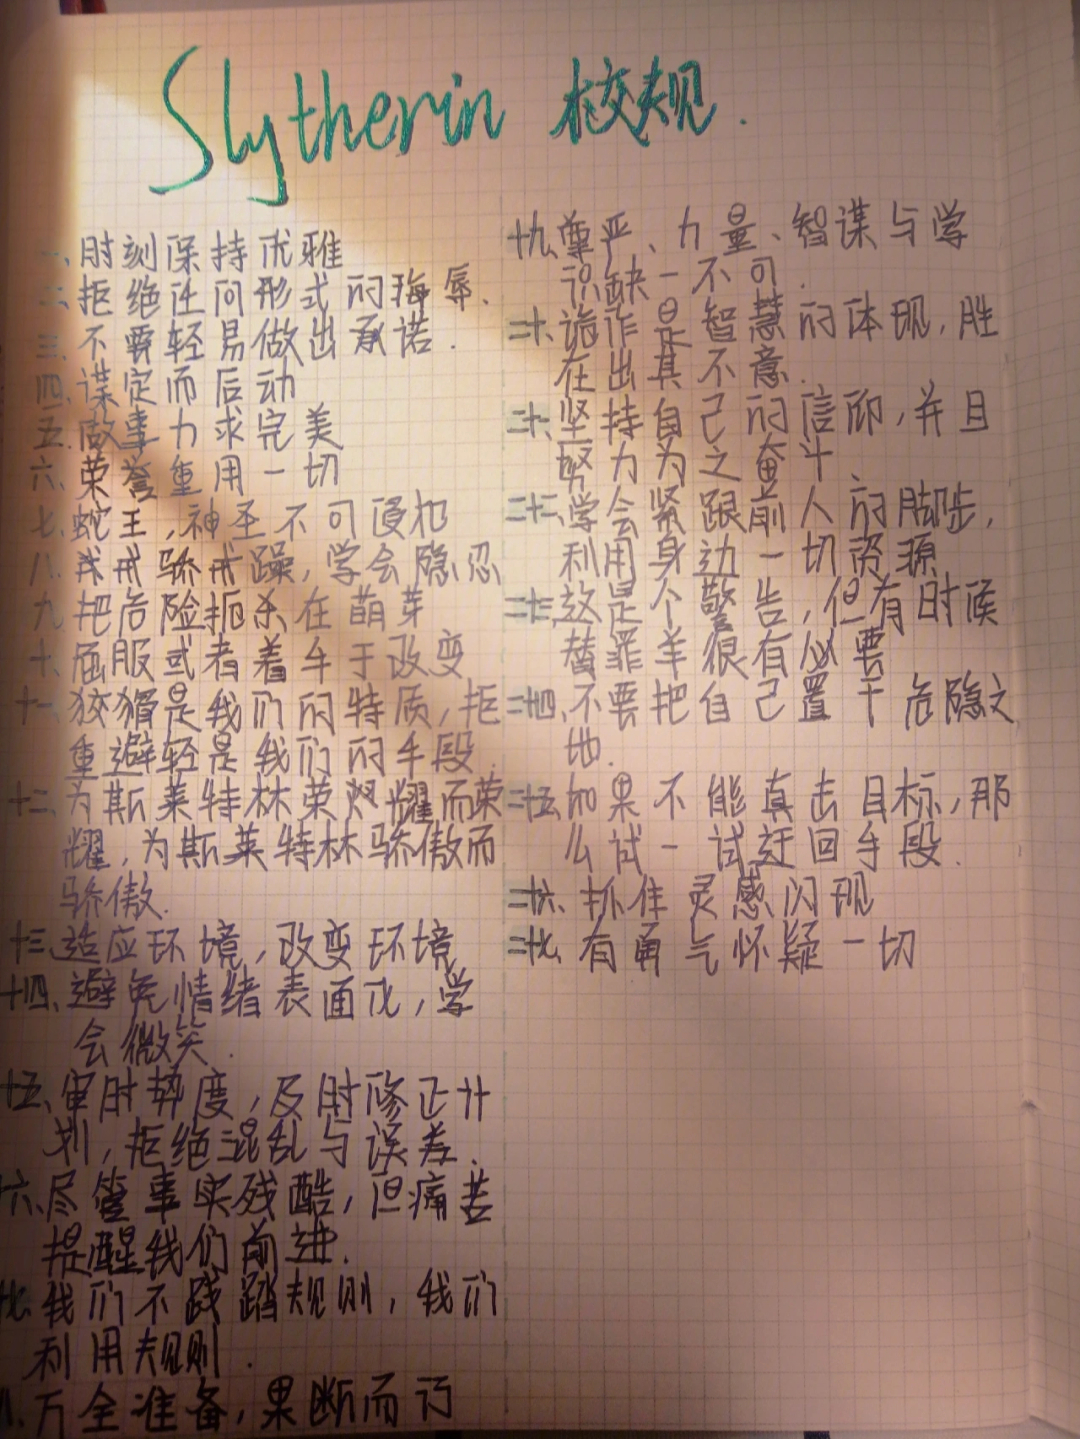 Slytherin 校规.
一、时刻保持优雅
二、拒绝任何形式的侮辱.
三、不要轻易做出承诺.
四、谋定而后动
五、做事力求完美
六、荣誉重用一切
七、蛇王,神圣不可侵犯
八、戒骄戒躁,学会隐忍
九、把危险扼杀在萌芽
十、屈服或者着手于改变
十一、狡猾是我们的特质,拒
重避轻是我们的手段.
十二、为斯莱特林荣耀而荣
耀,为斯莱特林骄傲而
骄傲.
十三、适应环境,改变环境
十四、避免情绪表面化,学
会微笑.
十五、审时势度,及时修正计
划,拒绝混乱与误差.
十六、尽管事实残酷,但痛苦
提醒我们前进.
十七、我们不践踏规则,我们
利用规则.
八、万全准备,果断而行
十九、尊严、力量、智谋与学
识缺一不可.
二十、诡诈是智慧的体现,胜
在出其不意.
二十一、坚持自己的信仰,并且
努力为之奋斗.
二十二、学会紧跟前人的脚步,
利用身边一切资源
二十三、这是个警告,但有时候
替罪羊很有必要
二十四、不要把自己置于危险之
地.
二十五、如果不能直击目标,那
么试一试迂回手段.
二十六、抓住灵感闪现
二十七、有勇气怀疑一切